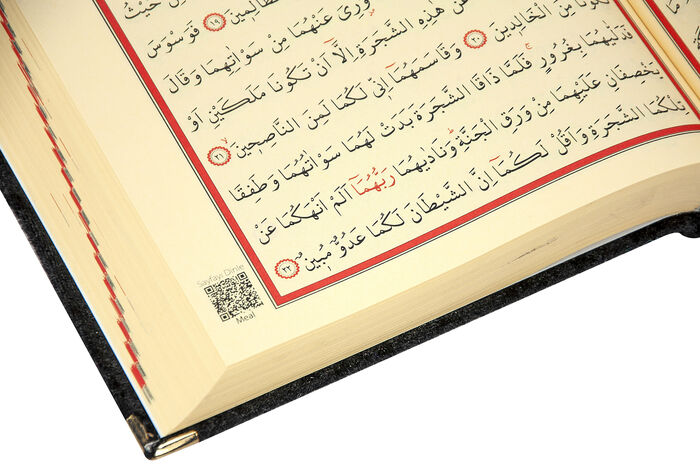 حَيْثُ
الظَّالِم۪ينَ ﴿١٩﴾ فَوَسْوَسَ
وُرِيَ عَنْهُمَا مِنْ سَوْاٰتِهِمَا وَقَالَ
عَنْ هٰذِهِ الشَّجَرَةِ اِلَّٓا اَنْ تَكُونَا مَلَكَيْنِ اَوْ
تَكُونَا مِنَ الْخَالِد۪ينَ ﴿٢٠﴾ وَقَاسَمَهُمَٓا اِنّ۪ي لَكُمَا لَمِنَ النَّاصِح۪ينَۙ ﴿٢١﴾
فَدَلّٰيهُمَا بِغُرُورٍۚ فَلَمَّا ذَاقَا الشَّجَرَةَ بَدَتْ لَهُمَا سَوْاٰتُهُمَا وَطَفِقَا
يَخْصِفَانِ عَلَيْهِمَا مِنْ وَرَقِ الْجَنَّةِۜ وَنَادٰيهُمَا رَبُّهُمَٓا اَلَمْ اَنْهَكُمَا عَنْ
تِلْكُمَا الشَّجَرَةِ وَاَقُلْ لَكُمَٓا اِنَّ الشَّيْطَانَ لَكُمَا عَدُوٌّ مُب۪ينٌ ﴿٢٢﴾
Sayfayı Dinle
Meal